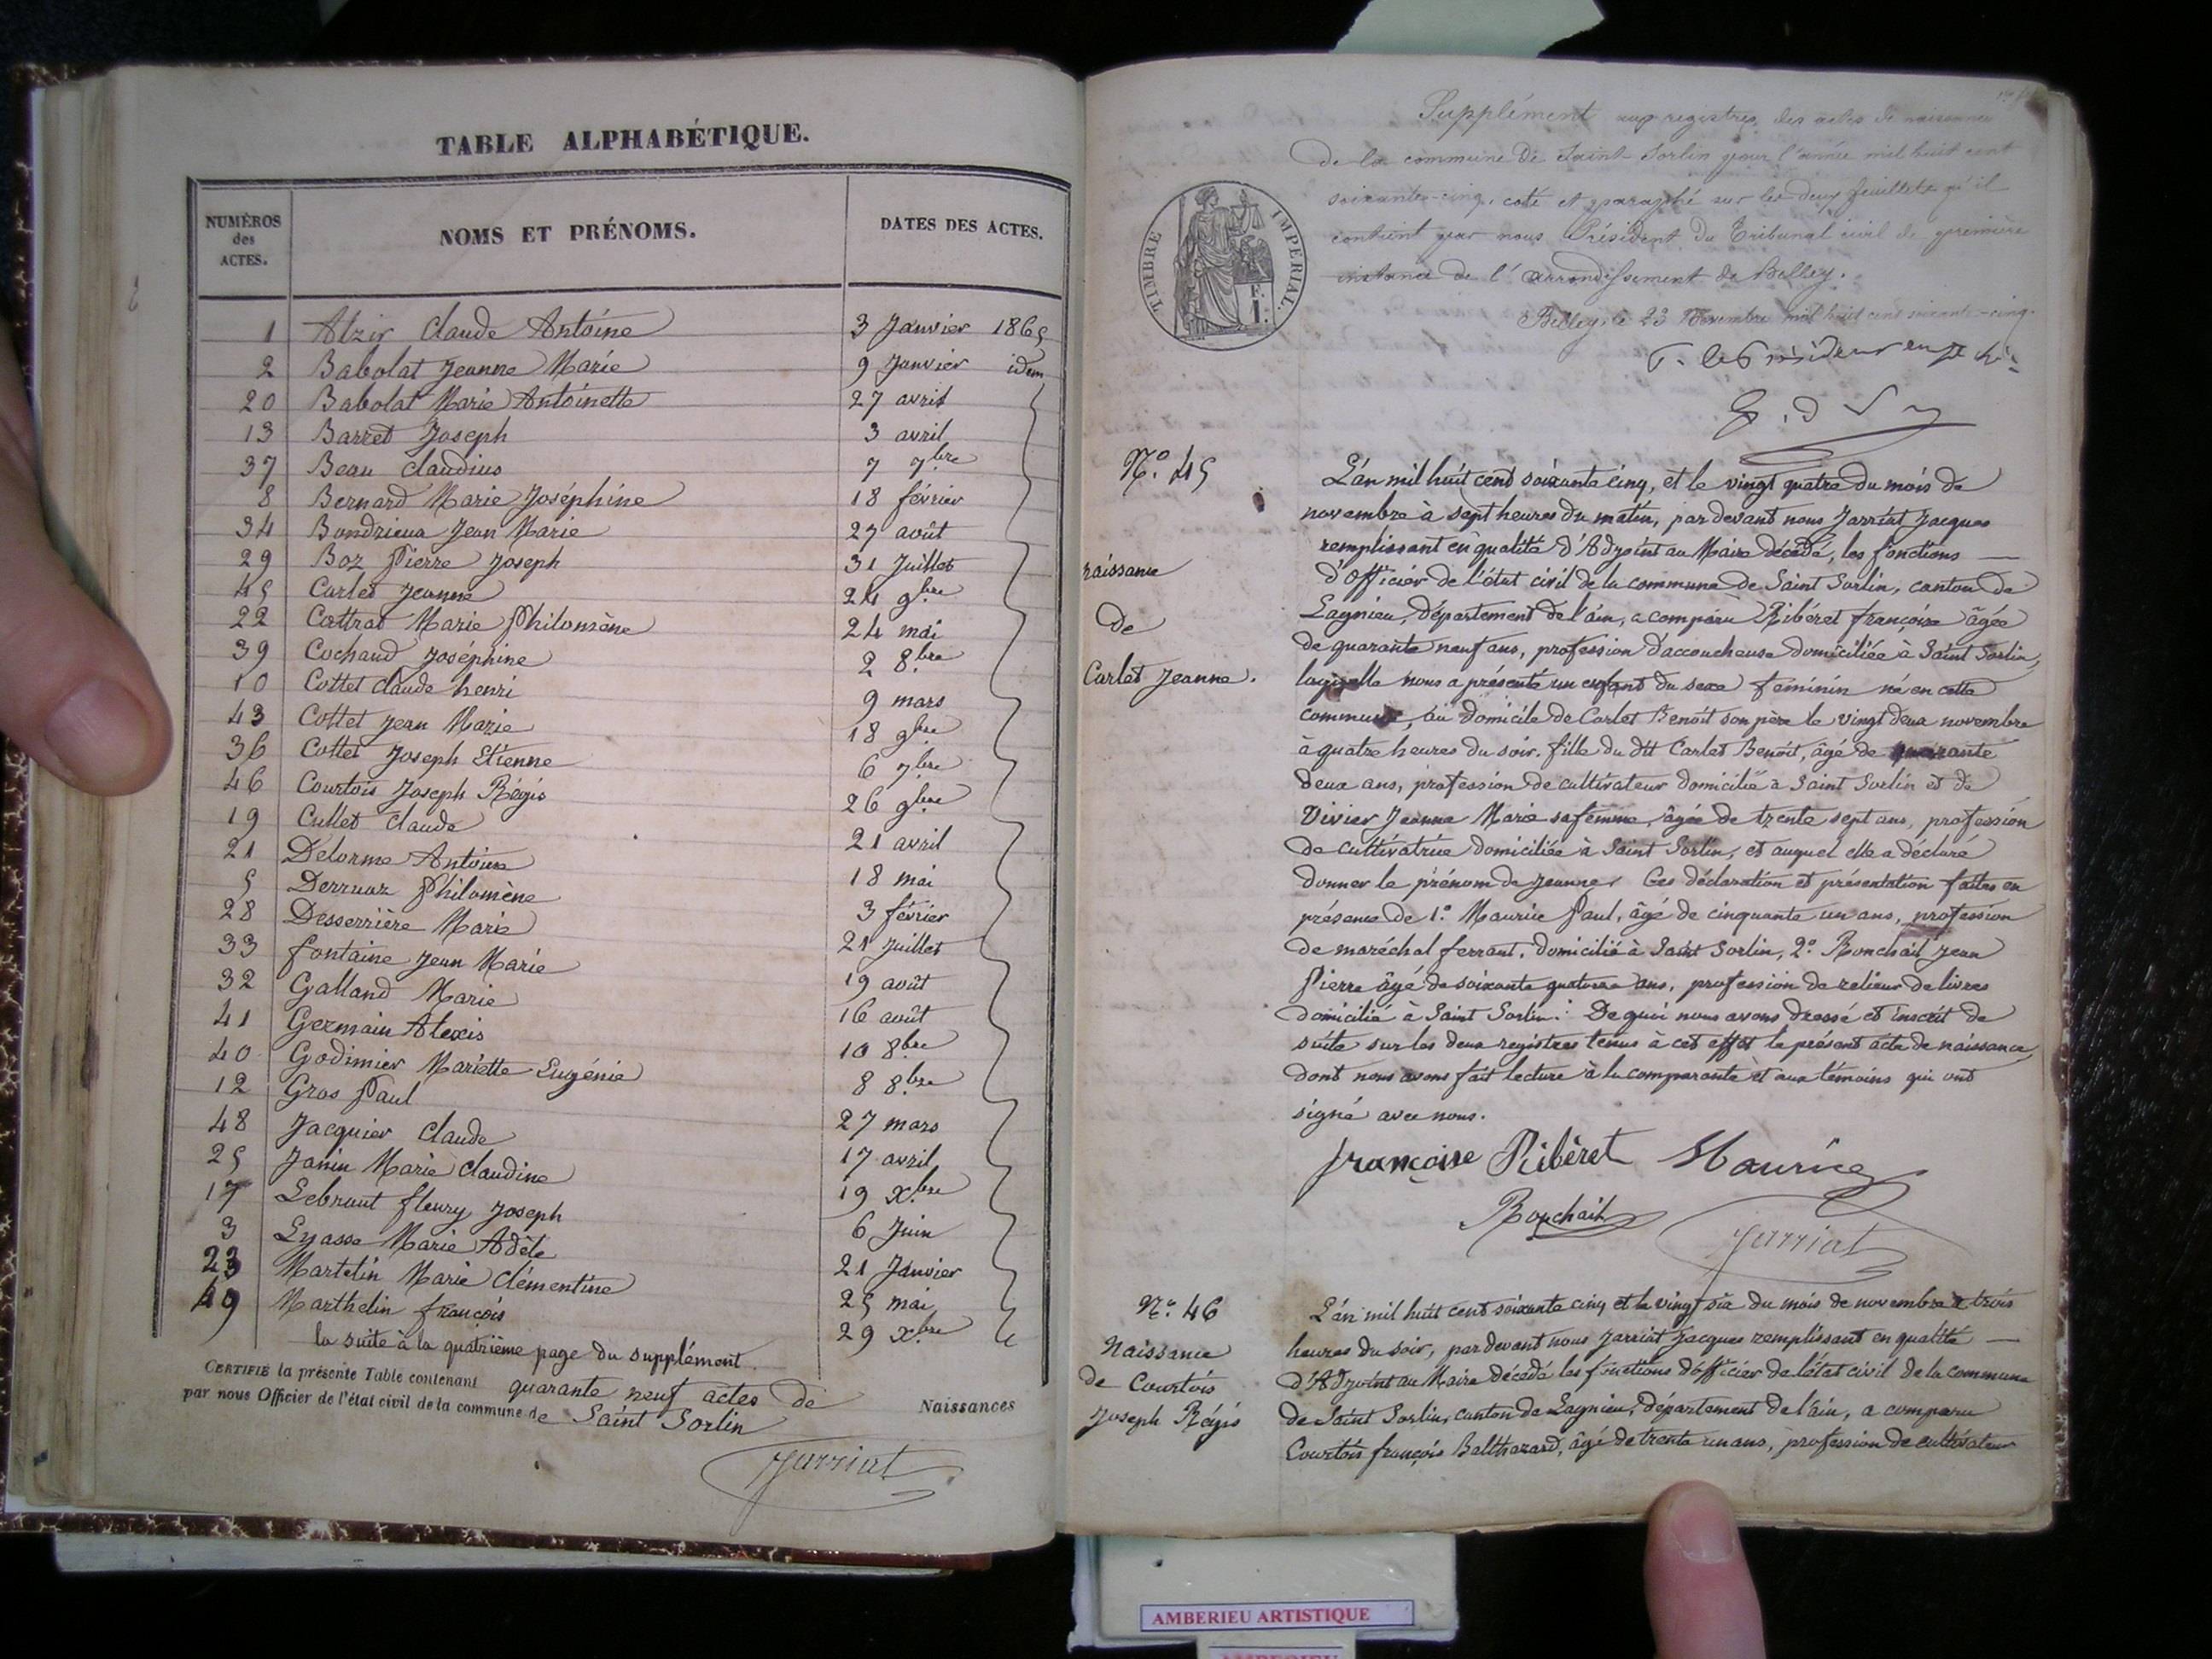 TABLE ALPHABÉTIQUE.
NUMÉROS des ACTES.
NOMS ET PRÉNOMS.
DATES DES ACTES.
1 Alzir Claude Antoine 3 Janvier 1865
2 Babolat Jeanne Marie 9 Janvier idem
20 Babolat Marie Antoinette 27 avril
13 Barret Joseph 3 avril
37 Beau Claudius 7 7bre
8 Bernard Marie Joséphine 18 février
34 Bondrieux Jean Marie 27 août
29 Boz Pierre Joseph 31 Juillet
45 Carlet Jeanne 24 9bre
22 Cottrat Marie Philomène 24 mai
39 Cochand Joséphine 2 8bre
10 Cottet Claude henri 9 mars
43 Cottet Jean Marie 18 9bre
36 Cottet Joseph Etienne 6 7bre
46 Courtois Joseph Régis 26 9bre
19 Cullet Claude 21 avril
21 Delorme Antoine 18 mai
5 Derruaz Philomène 3 février
28 Desserrière Marie 21 Juillet
33 fontaine Jean Marie 19 août
32 Galland Marie 16 août
41 Germain Alexis 10 8bre
40 Godimier Mariette Eugénie 8 8bre
12 Gros Paul 27 mars
48 Jacquier Claude 17 avril
25 Janin Marie Claudine 19 Xbre
17 Lebrunt fleury Joseph 6 Juin
3 Lyasse Marie Adèle 21 Janvier
23 Martelin Marie Clémentine 25 mai
49 Marthelin françois 29 Xbre
la suite à la quatrième page du supplément
CERTIFIÉ la présente Table contenant quarante neuf actes de Naissances
par nous Officier de l'état civil de la commune de Saint Sorlin
Jarriat
Supplément aux registres des actes de naissance
de la commune de Saint-Sorlin pour l'année mil huit cent
soixante-cinq, coté et paraphé sur les deux feuillets qu'il
contient par nous Président du Tribunal civil de première
instance de l'arrondissement de Belley.
Belley, le 23 Novembre mil huit cent soixante-cinq.
TIMBRE IMPÉRIAL.
F.
1.
No. 45
naissance
de
Carlet Jeanne.
L'an mil huit cent soixante cinq, et le vingt quatre du mois de
novembre à sept heures du matin, par devant nous Jarriat Jacques
remplissant en qualité d'Adjoint au Maire décédé, les fonctions
d'officier de l'état civil de la commune de Saint Sorlin, canton de
Lagnieu, département de l'ain, a comparu Ribéret françoise âgée
de quarante neuf ans, profession d'accoucheuse domiciliée à Saint Sorlin,
laquelle nous a présenté un enfant du sexe féminin né en cette
commune, au domicile de Carlet Benoît son père le vingt deux novembre
à quatre heures du soir. fille du dit Carlet Benoit, âgé de quarante
deux ans, profession de cultivateur domicilié à Saint Sorlin et de
Vivier Jeanne Marie sa femme, âgée de trente sept ans, profession
de cultivatrice domiciliée à Saint Sorlin, et auquel elle a déclaré
donner le prénom de Jeanne. Ces déclaration et présentation faites en
présence de 1o. Maurice Paul, âgé de cinquante un ans, profession
de maréchal ferrant, domicilié à Saint Sorlin, 2o. Ronchail Jean
Pierre âgé de soixante quatorze ans, profession de relieur de livres
domicilié à Saint Sorlin. De quoi nous avons dressé et inscrit de
suite sur les deux registres tenus à cet effet le présent acte de naissance,
dont nous avons fait lecture à la comparante et aux témoins qui ont
signé avec nous.
françoise Ribèret Maurice
Ronchail
Jarriat
No. 46
Naissance
de Courtois
Joseph Régis
L'an mil huit cent soixante cinq et le vingt six du mois de novembre à trois
heures du soir, par devant nous Jarriat Jacques remplissant en qualité
d'Adjoint au Maire décédé les fonctions d'officier de l'état civil de la commune
de Saint Sorlin, canton de Lagnieu, département de l'ain, a comparu
Courtois françois Balthazard, âgé de trente un ans, profession de cultivateur
AMBERIEU ARTISTIQUE
AMBERIEU